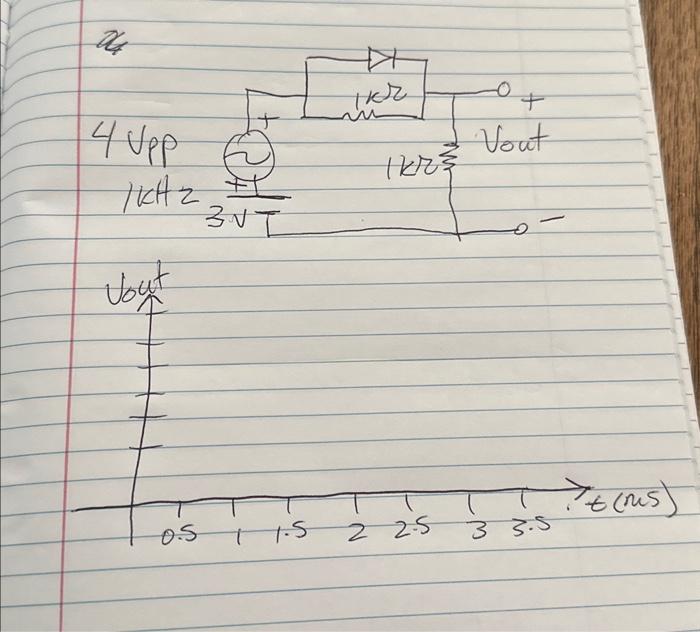 1kΩ
+
+
4 Vpp
Vout
1kΩ
1kHz
+
3V
-
Vout
t(ms)
0.5 1 1.5 2 2.5 3 3.5